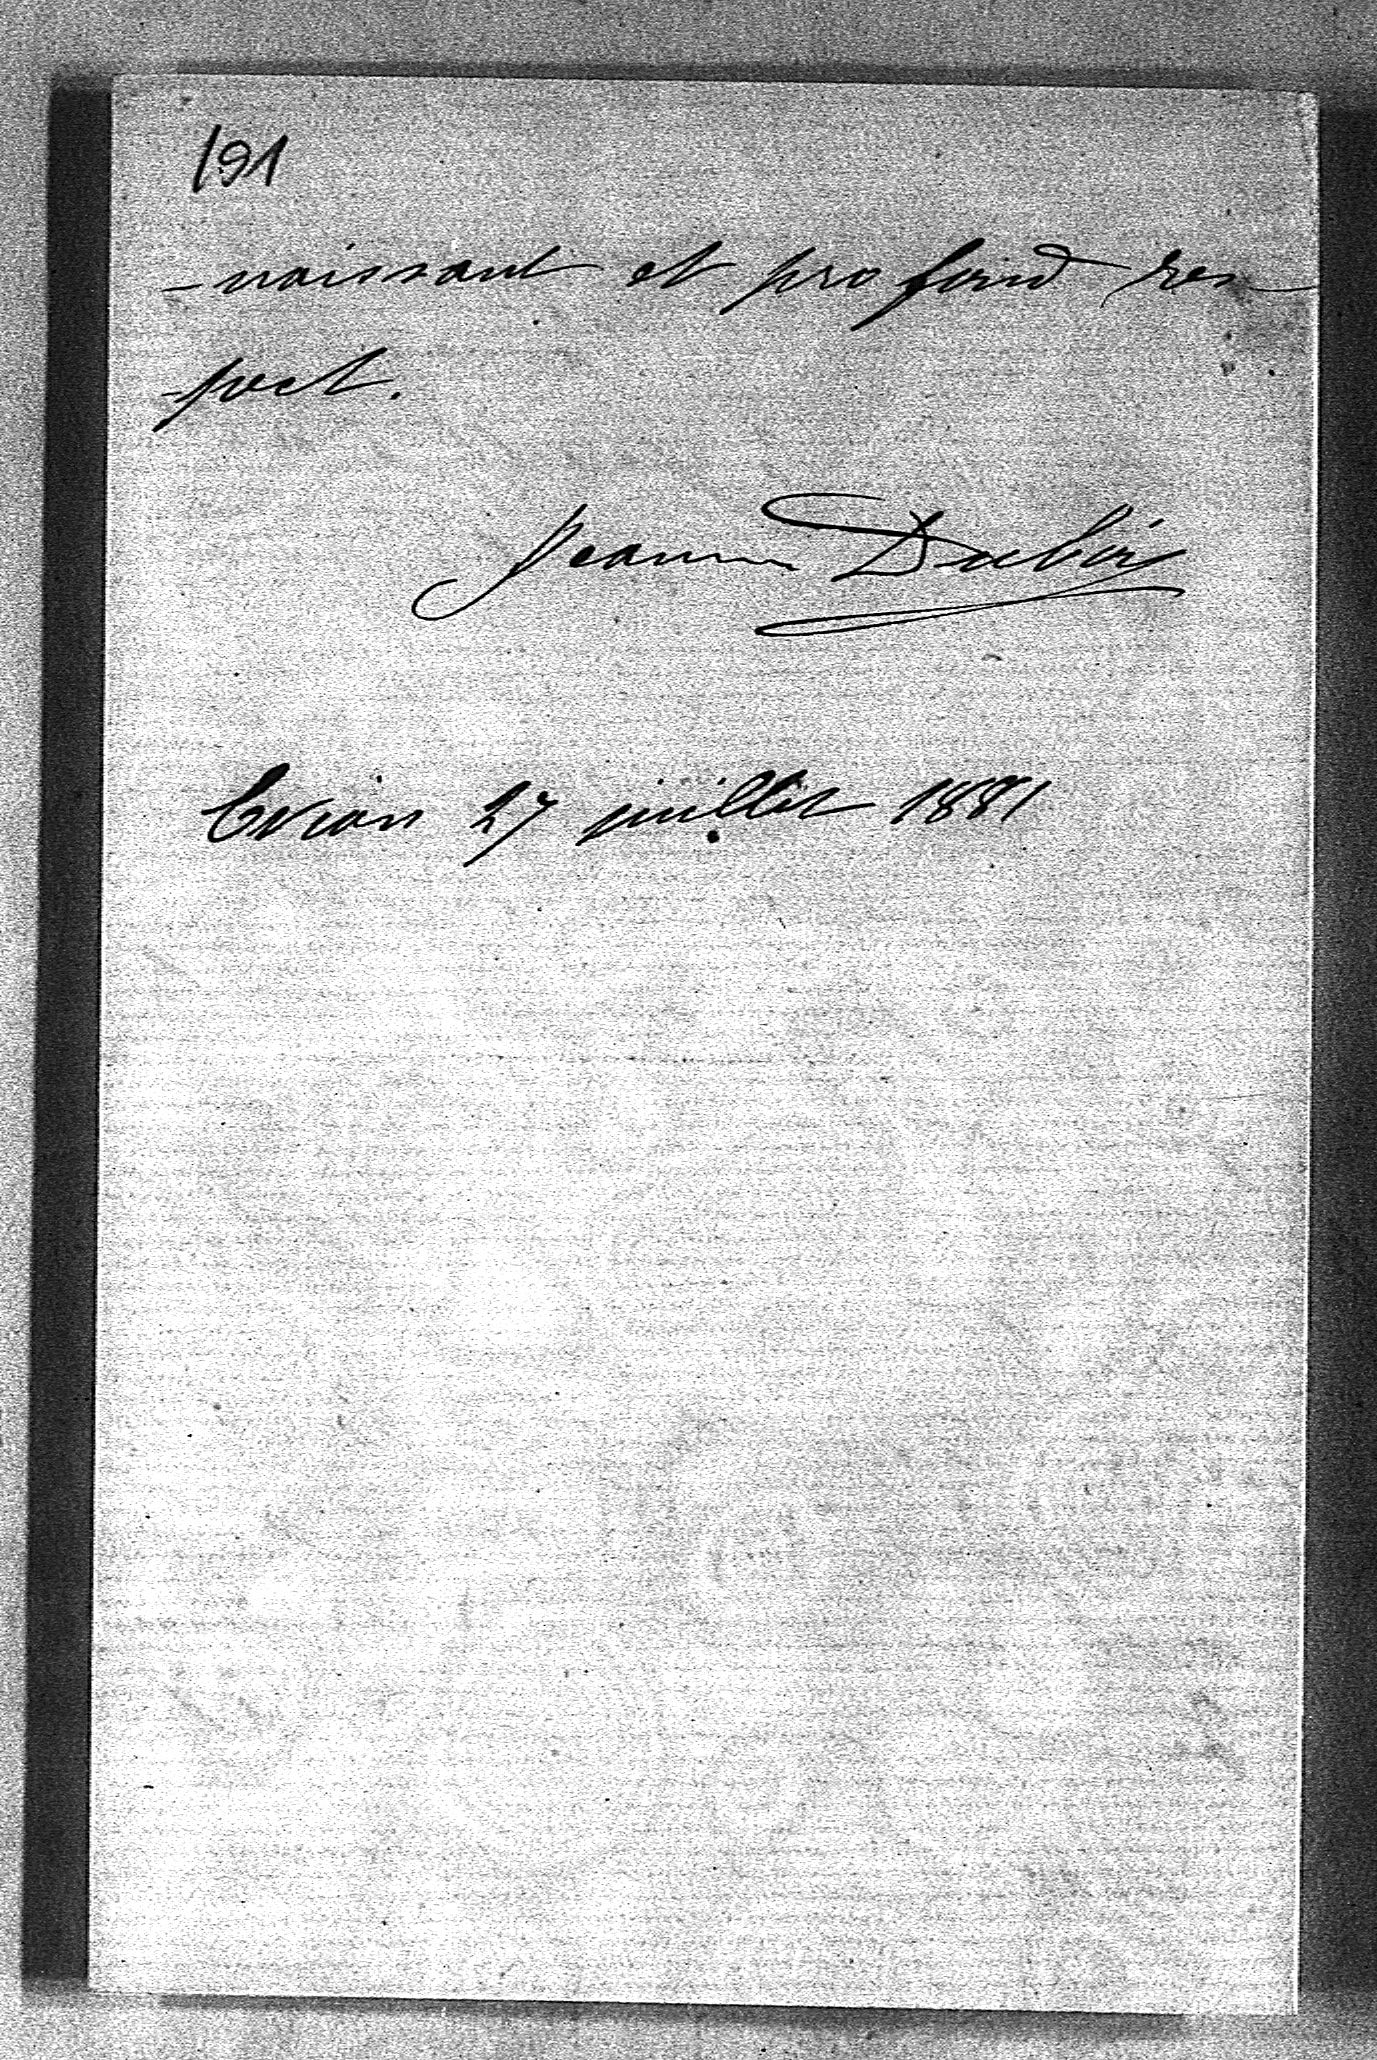 191
-naissant et profond res-
-pect.
Jeanne Dubois
Evian 27 juillet 1881